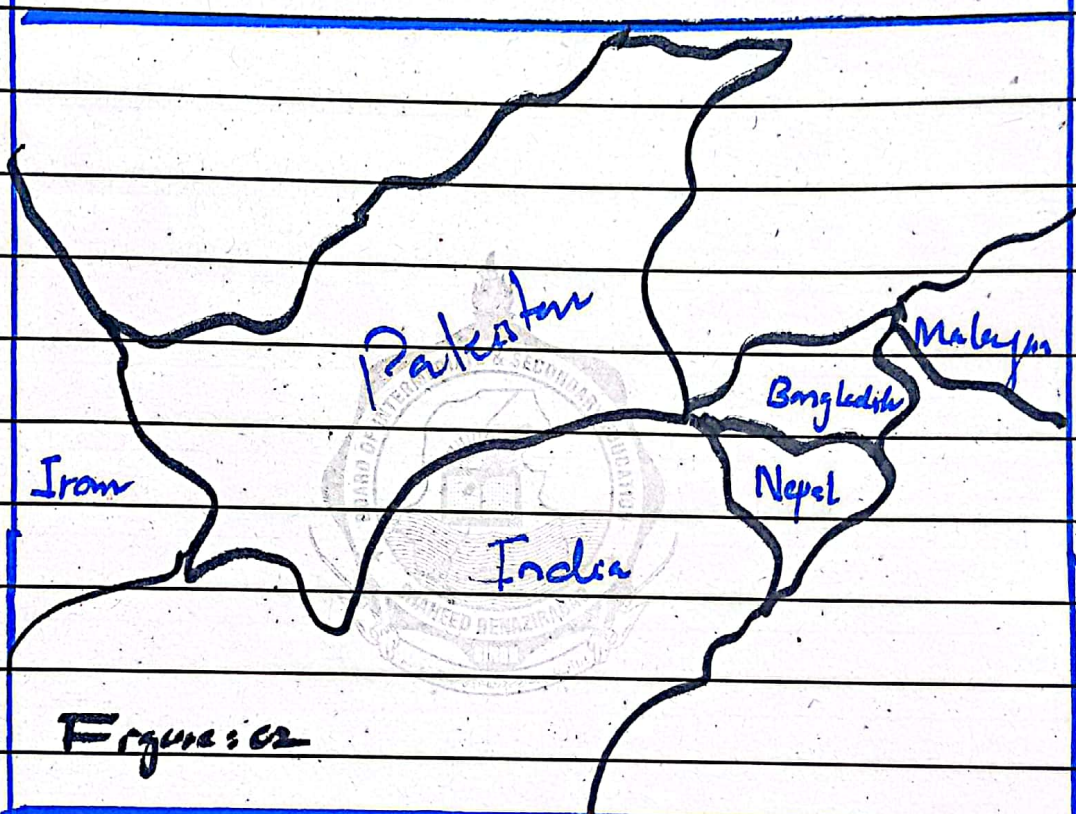 Pakistan
Malaysia
Bangladesh
Iran
Nepal
India
BOARD OF INTERMEDIATE & SECONDARY EDUCATION
SHAHEED BENAZIRABAD
Figure: 02